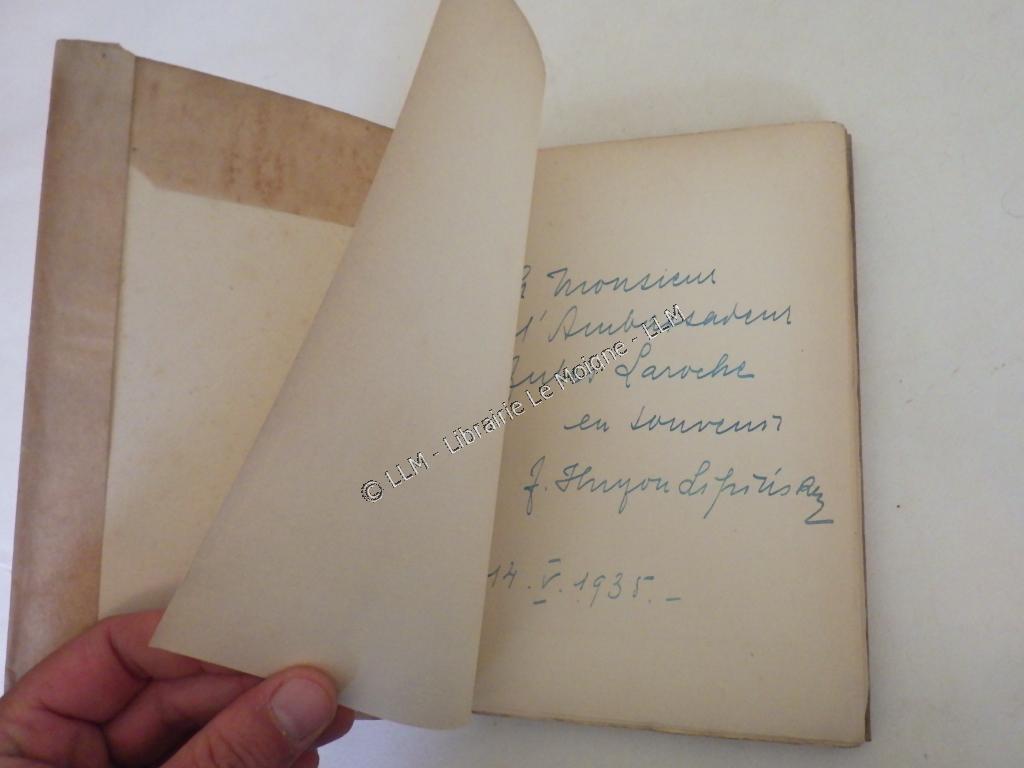 à Monsieur
l'Ambassadeur
Jules Laroche
en souvenir
J. Huyon Lipiński
14. V. 1935. –
© LLM - Librairie Le Moigne - LLM